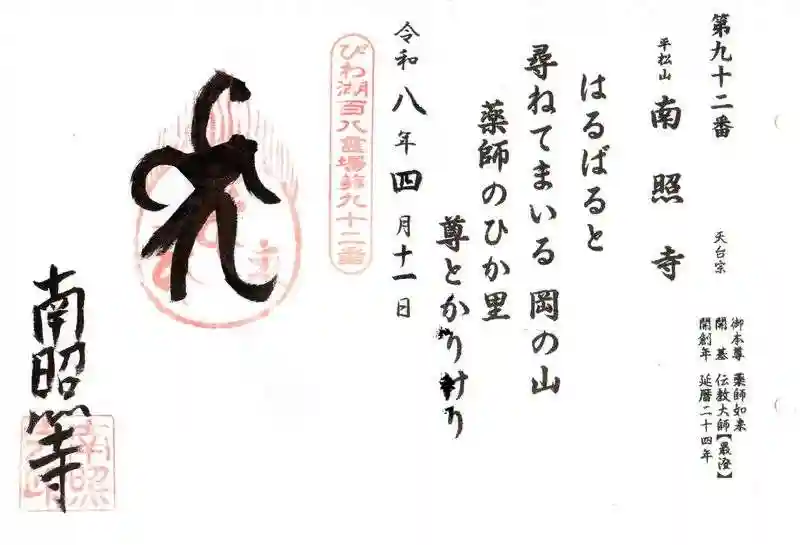 第九十二番
平松山 南照寺 天台宗
御本尊 薬師如来
開基 伝教大師【最澄】
開創年 延暦二十四年
はるばると
尋ねてまいる 岡の山
薬師のひか里
尊とかりけり
令和八年四月十一日
びわ湖百八霊場第九十二番
南照寺
南照